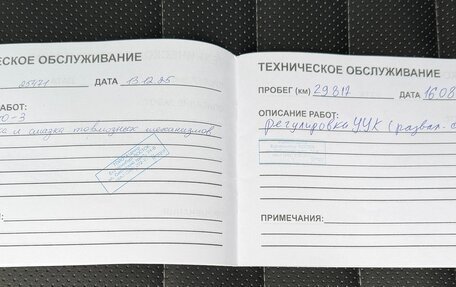 ЕСКОЕ ОБСЛУЖИВАНИЕ
25421 ДАТА 13.12.25
РАБОТ:
О-3
ка и смазка тормозных механизмов
ТЕХНИЧЕСКОЕ ОБСЛУЖИВАНИЕ
ПРОБЕГ (км) 29.817 ДАТА 16.08
ОПИСАНИЕ РАБОТ:
регулировка УУК (развал-с
ПРИМЕЧАНИЯ: